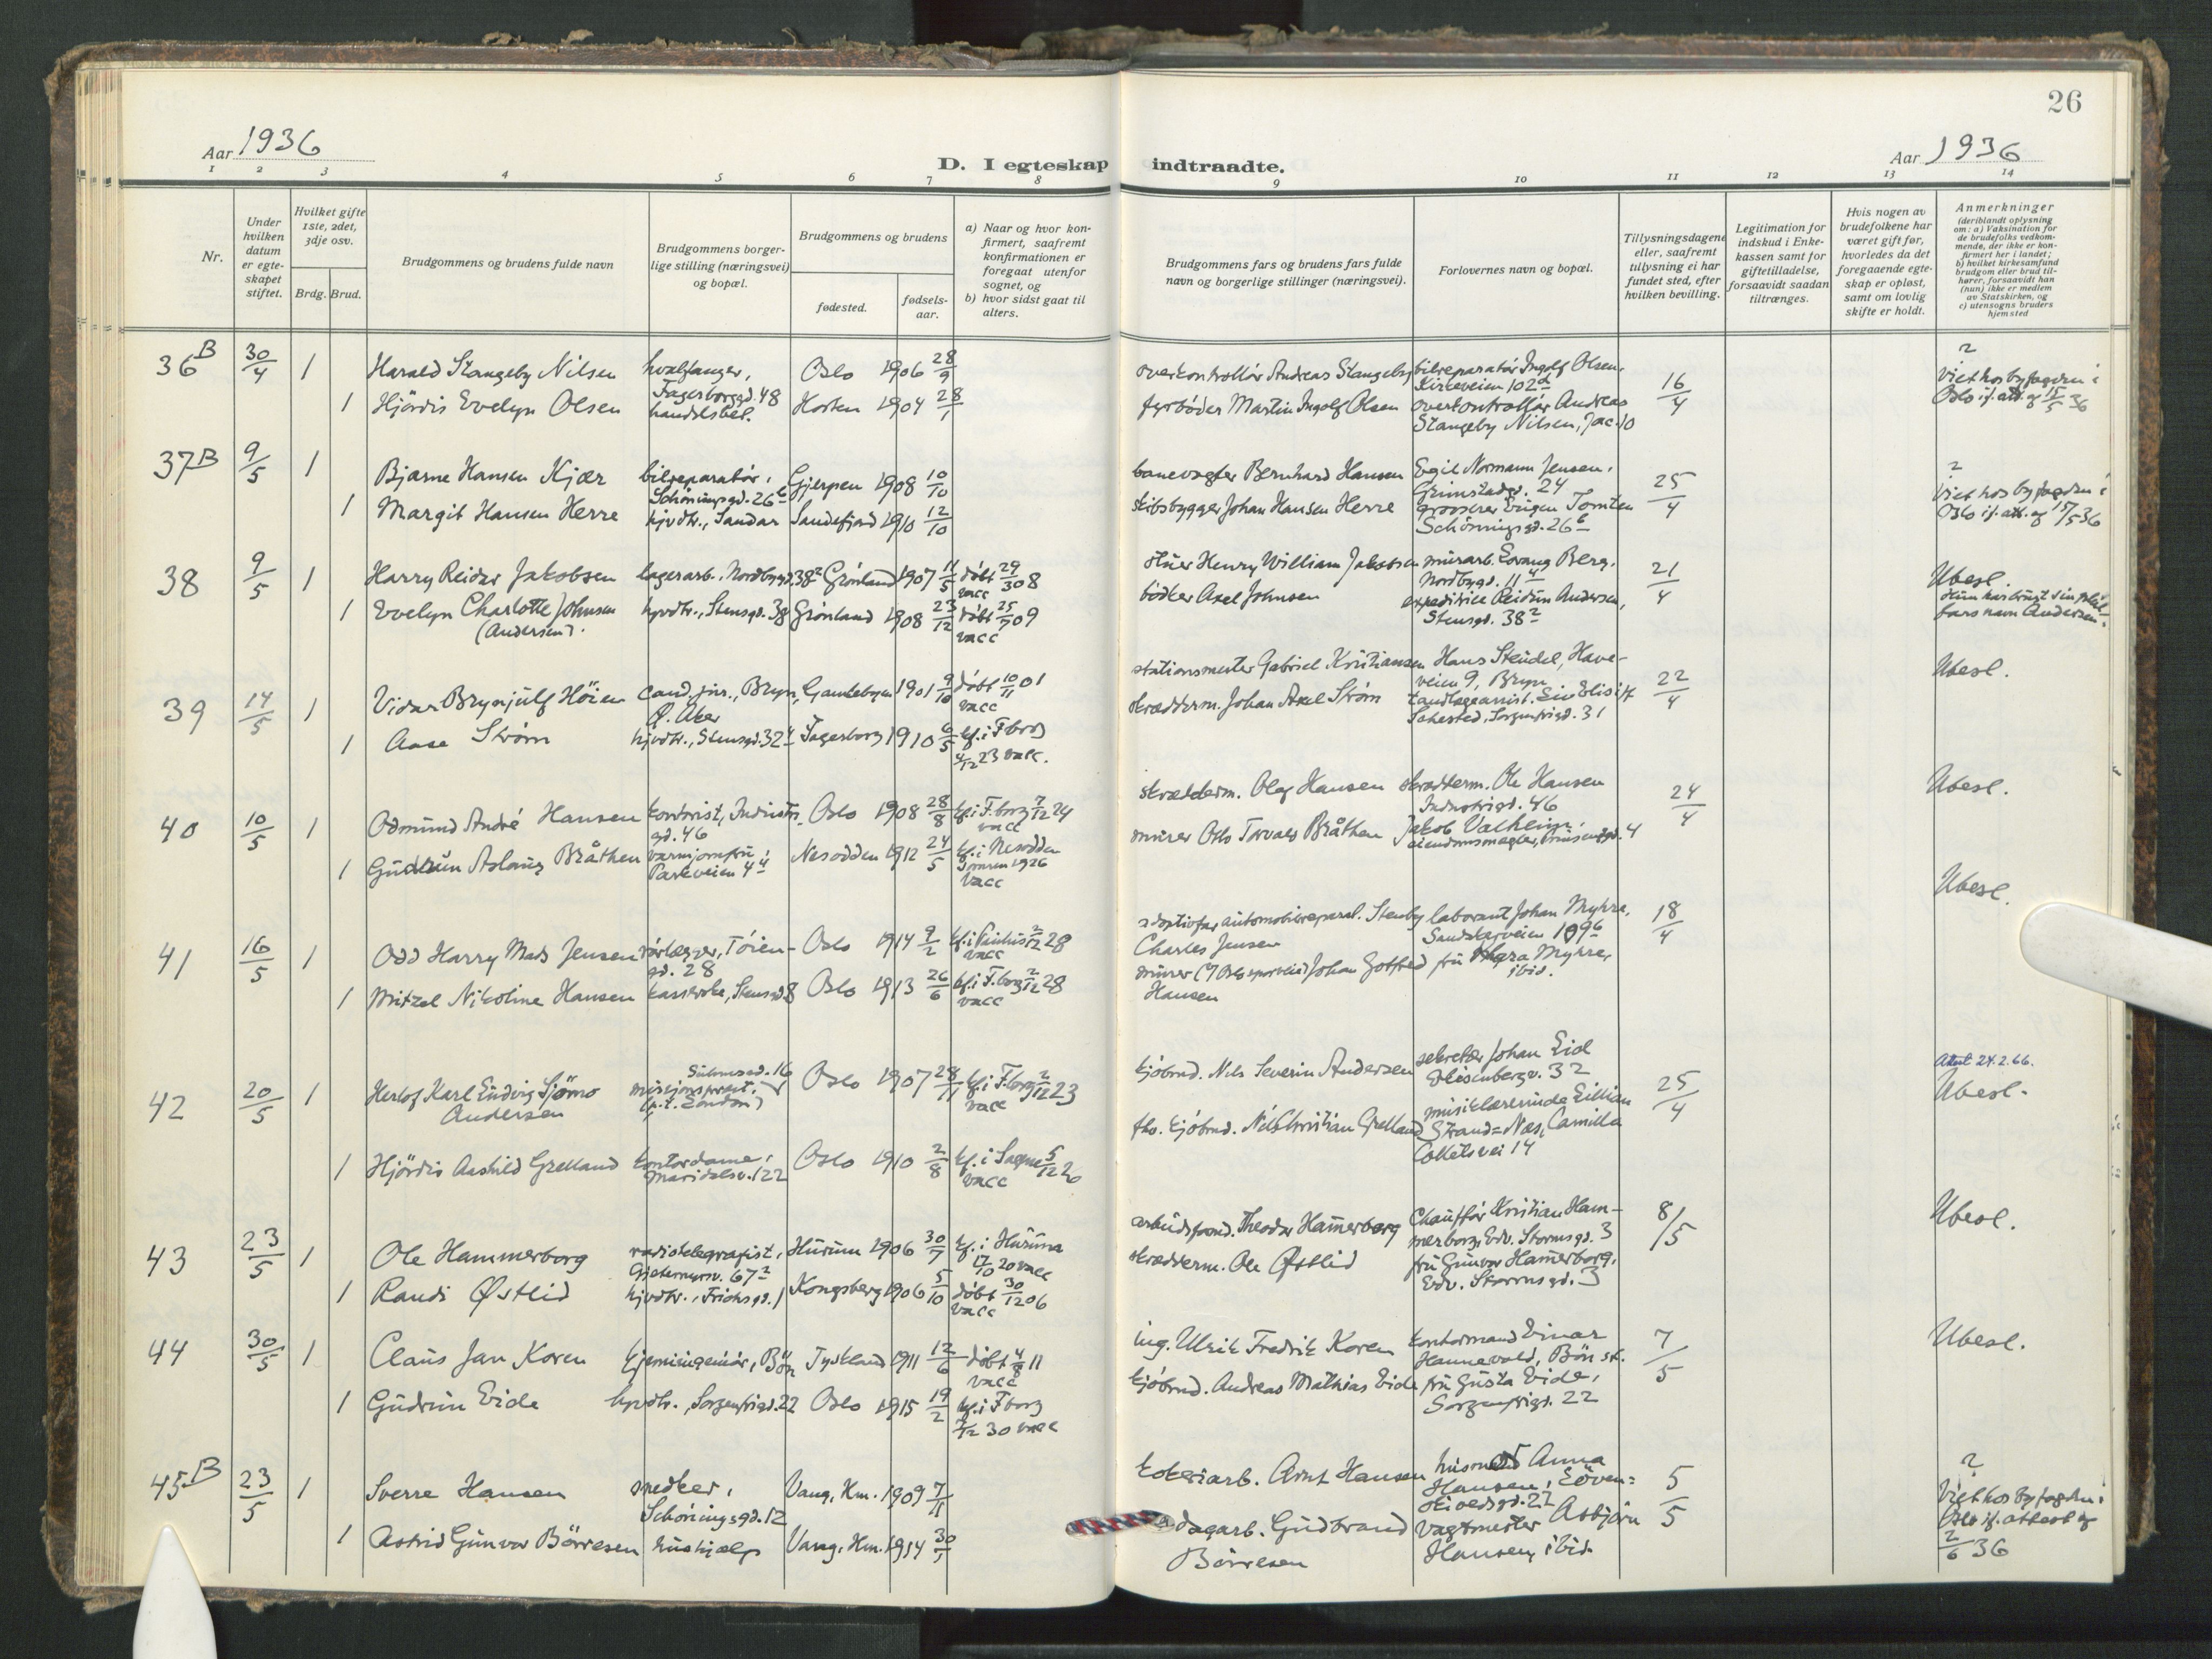 26
Aar 1936
D. I egteskap indtraadte.
Aar 1936
1 2 3 4 5 6 7 8 9 10 11 12 13 14
Nr.
Under
hvilken
datum
er egte-
skapet
stiftet.
Hvilket gifte
1ste, 2det,
3dje osv.
Brdg. Brud.
Brudgommens og brudens fulde navn
Brudgommens borger-
lige stilling (næringsvei)
og bopæl.
Brudgommens og brudens
fødested.
fødsels-
aar.
a) Naar og hvor kon-
firmert, saafremt
konfirmationen er
foregaat utenfor
sognet, og
b) hvor sidst gaat til
alters.
Brudgommens fars og brudens fars fulde
navn og borgerlige stillinger (næringsvei).
Forlovernes navn og bopæl.
Tillysningsdagene
eller, saafremt
tillysning ei har
fundet sted, efter
hvilken bevilling.
Legitimation for
indskud i Enke-
kassen samt for
giftetilladelse,
forsaavidt saadan
tiltrænges.
Hvis nogen av
brudefolkene har
været gift før,
hvorledes da det
foregaaende egte-
skap er opløst,
samt om lovlig
skifte er holdt.
Anmerkninger
(deriblandt oplysning
om: a) Vaksination for
de brudefolks vedkom-
mende, der ikke er kon-
firmert her i landet;
b) hvilket kirkesamfund
brudgom eller brud til-
hører, forsaavidt han
(hun) ikke er medlem
av Statskirken, og
c) utensogns bruders
hjemsted
36 B 30/4 1 Harald Stangeby Nilsen hvalfanger, Oslo 1906 28/9
Fagerborggd. 48
1 Hjördis Evelyn Olsen handelsbet. Horten 1904 28/1
overkontrollör Andreas Stangeby bilreparatör Ingolf Olsen,
Kirkeveien 102 d
fyrböder Martin Ingolf Olsen overkontrollör Andreas
Stangeby Nilsen, Jac. 10
16/4
Viet hos byfogden i
Oslo if. att. af 15/5 36
37 B 9/5 1 Bjarne Hansen Kjær bilreparatör, Gjerpen 1908 10/10
Schöningsgd. 26 c
1 Margit Hansen Herre hjvdtr., Sandar Sandefjord 1910 12/10
banevogter Bernhard Hansen Egil Normann Jensen,
Grimstadgd. 24
skibsbygger Johan Hansen Herre grosserer Tomten
Schöningsgd. 26 c
25/4
Viet hos byfogden i
Oslo if. att. af 15/5 36
38 9/5 1 Harry Reidar Jakobsen lagerarb., Nordbygd. 38² Grönland 1907 11/5 döbt 29/3 08
vacc
1 Evelyn Charlotte Johnsen hjvdtr., Stensgd. 38 Grönland 1908 23/12 döbt 25/7 09
(Andersen). vacc
Henry William Jakobsen murarb. Berg,
Nordbygd. 11 4
bödker Axel Johnsen expeditrice Reidun Andersen,
Stensgd. 38 2
21/4
Ubesl.
Hun har brugt sin
fars navn Andersen.
39 14/5 1 Vidar Brynjulf Höien cand. jur., Bryn, 1901 9/10 döbt 10/11 01
Ö. Aker vacc
1 Aase Ström hjvdtr., Stensgd. 32 4 Fagerborg 1910 6/5 kf. i F.borg
4/12 23 vacc.
stationsmester Gabriel Kristiansen Hans Steudel, Have-
veien 9, Bryn
skrædderm. Johan Axel Ström tandlægeassist.
Sehested, Sorgenfrigd. 31
22/4
Ubesl.
40 10/5 1 Odmund André Hansen kontorist, Industri- Oslo 1908 28/8 kf. i F.borg 7/12 24
gd. 46 vacc
1 Gudrun Aslaug Bråthen varmjomfru, Nesodden 1912 24/5 kf. i Nesodden
Parkveien 4 4 1926
vacc
skrædderm. Olaf Hansen skrædderm. Ole Hansen
Industrigd. 46
murer Bråthen Jakob Valheim,
eiendomsmægler, 4
24/4
Ubesl.
41 16/5 1 Odd Harry Mads Jensen rörlægger, Töien- Oslo 1914 9/2 kf. i Paulus 2/12 28
gd. 28 vacc
1 Mitzel Nikoline Hansen kasserske, Stensgd 8 Oslo 1913 26/6 kf. i F.borg 2/12 28
vacc
adoptivfar, automobilreparat. Stenby laborant Johan Myhre,
Charles Jensen Sandakerveien 109 6
murer Johan Gotfred fru Myhre,
Hansen ibid.
18/4
Ubesl.
42 20/5 1 Herlof Karl Ludvig Sjömo misjonsprest, Oslo 1907 28/11 kf. i F.borg 2/12 23
Andersen (p.t. London) vacc
1 Hjördis Aashild Grelland kontordame, Oslo 1910 2/8 kf. i Sagene 5/12 26
Maridalsv. 122 vacc
kjöbmd. Nils Severin Andersen sekretær Johan Eid
Elisenbergv. 32
fhv. kjöbmd. Nils Christian Grelland musiklærerinde Lillian
Strand=Næs, Camilla
Colletsvei 14
25/4
Attest 24.2.66.
Ubesl.
43 23/5 1 Ole Hammerborg radiotelegrafist, Hurum 1906 30/7 kf. i Hurum
Gjetemyrsv. 67 2 17/10 20 vacc
1 Randi Østlid hjvdtr., Frichsgd. 1 Kongsberg 1906 5/10 döbt 30/12 06
vacc
arbeidsformd. Theodor Hammerborg Chaufför Kristian Ham-
merborg, Edv. Stormsgd. 3
skrædderm. Ole Østlid fru Gunvor Hammerborg,
Edv. Stormsgd. 3
8/5
Ubesl.
44 30/5 1 Claus Jan Koren kjemiingeniör, Bön Tyskland 1911 12/6 döbt 4/8 11
vacc
1 Gudrun Eide hjvdtr., Sorgenfrigd. 22 Oslo 1915 19/2 kf. i F.borg
7/12 30 vacc
ing. Ulrik Fredrik Koren kontormand Einar
Hannevold, Bön st.
kjöbmd. Andreas Mathias Eide fru Gusta Eide,
Sorgenfrigd. 22
7/5
Ubesl.
45 B 23/5 1 Sverre Hansen snedker, Vang, Hm. 1909 7/11
Schöningsgd. 12
1 Astrid Gunvor Börresen hushjælp Vang, Hm. 1914 30/1
kokeriarb. Arnt Hansen husmor Anna
Hansen, Löven-
skioldsgd. 22
dagarb. Gudbrand vagtmester Asbjörn
Börresen Hansen, ibid.
5/5
Viet hos byfogden i
Oslo if. attest af
2/6 36